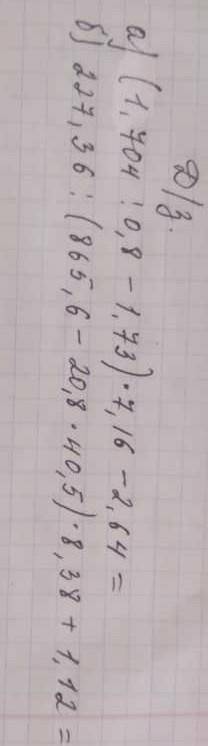 Д/з.
а) (1,704 : 0,8 - 1,73) · 7,16 - 2,64 =
б) 227,36 : (865,6 - 20,8 · 40,5) · 8,38 + 1,12 =